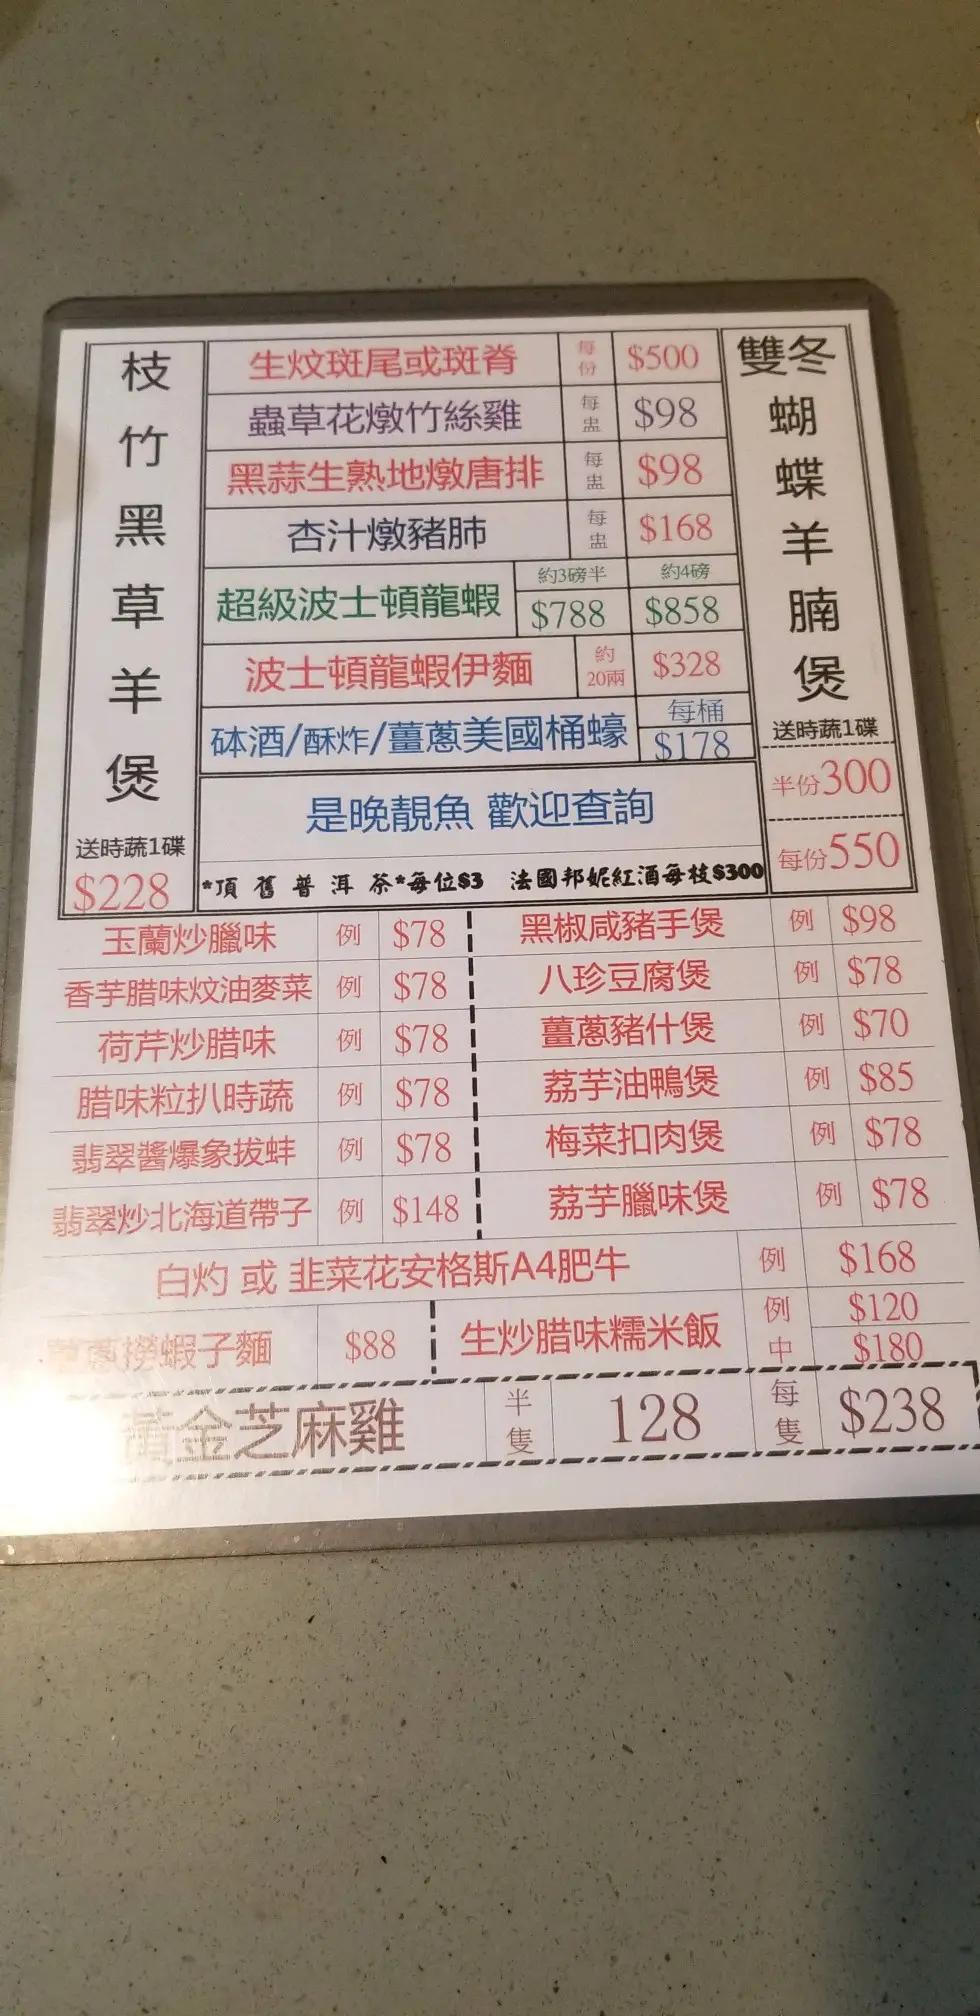 枝竹黑草羊煲
送時蔬1碟
$228
生炆斑尾或斑脊 每份 $500
蟲草花燉竹絲雞 每盅 $98
黑蒜生熟地燉唐排 每盅 $98
杏汁燉豬肺 每盅 $168
超級波士頓龍蝦 約3磅半 $788 約4磅 $858
波士頓龍蝦伊麵 約20兩 $328
砵酒/酥炸/薑蔥美國桶蠔 每桶 $178
是晚靚魚 歡迎查詢
*頂舊普洱茶*每位$3 法國邦妮紅酒每枝$300
雙冬蝴蝶羊腩煲
送時蔬1碟
半份300
每份550
玉蘭炒臘味 例 $78
黑椒咸豬手煲 例 $98
香芋腊味炆油麥菜 例 $78
八珍豆腐煲 例 $78
荷芹炒腊味 例 $78
薑蔥豬什煲 例 $70
腊味粒扒時蔬 例 $78
荔芋油鴨煲 例 $85
翡翠醬爆象拔蚌 例 $78
梅菜扣肉煲 例 $78
翡翠炒北海道帶子 例 $148
荔芋臘味煲 例 $78
白灼 或 韭菜花安格斯A4肥牛 例 $168
薑蔥撈蝦子麵 $88
生炒腊味糯米飯 例 $120 中 $180
黃金芝麻雞 半隻 128 每隻 $238